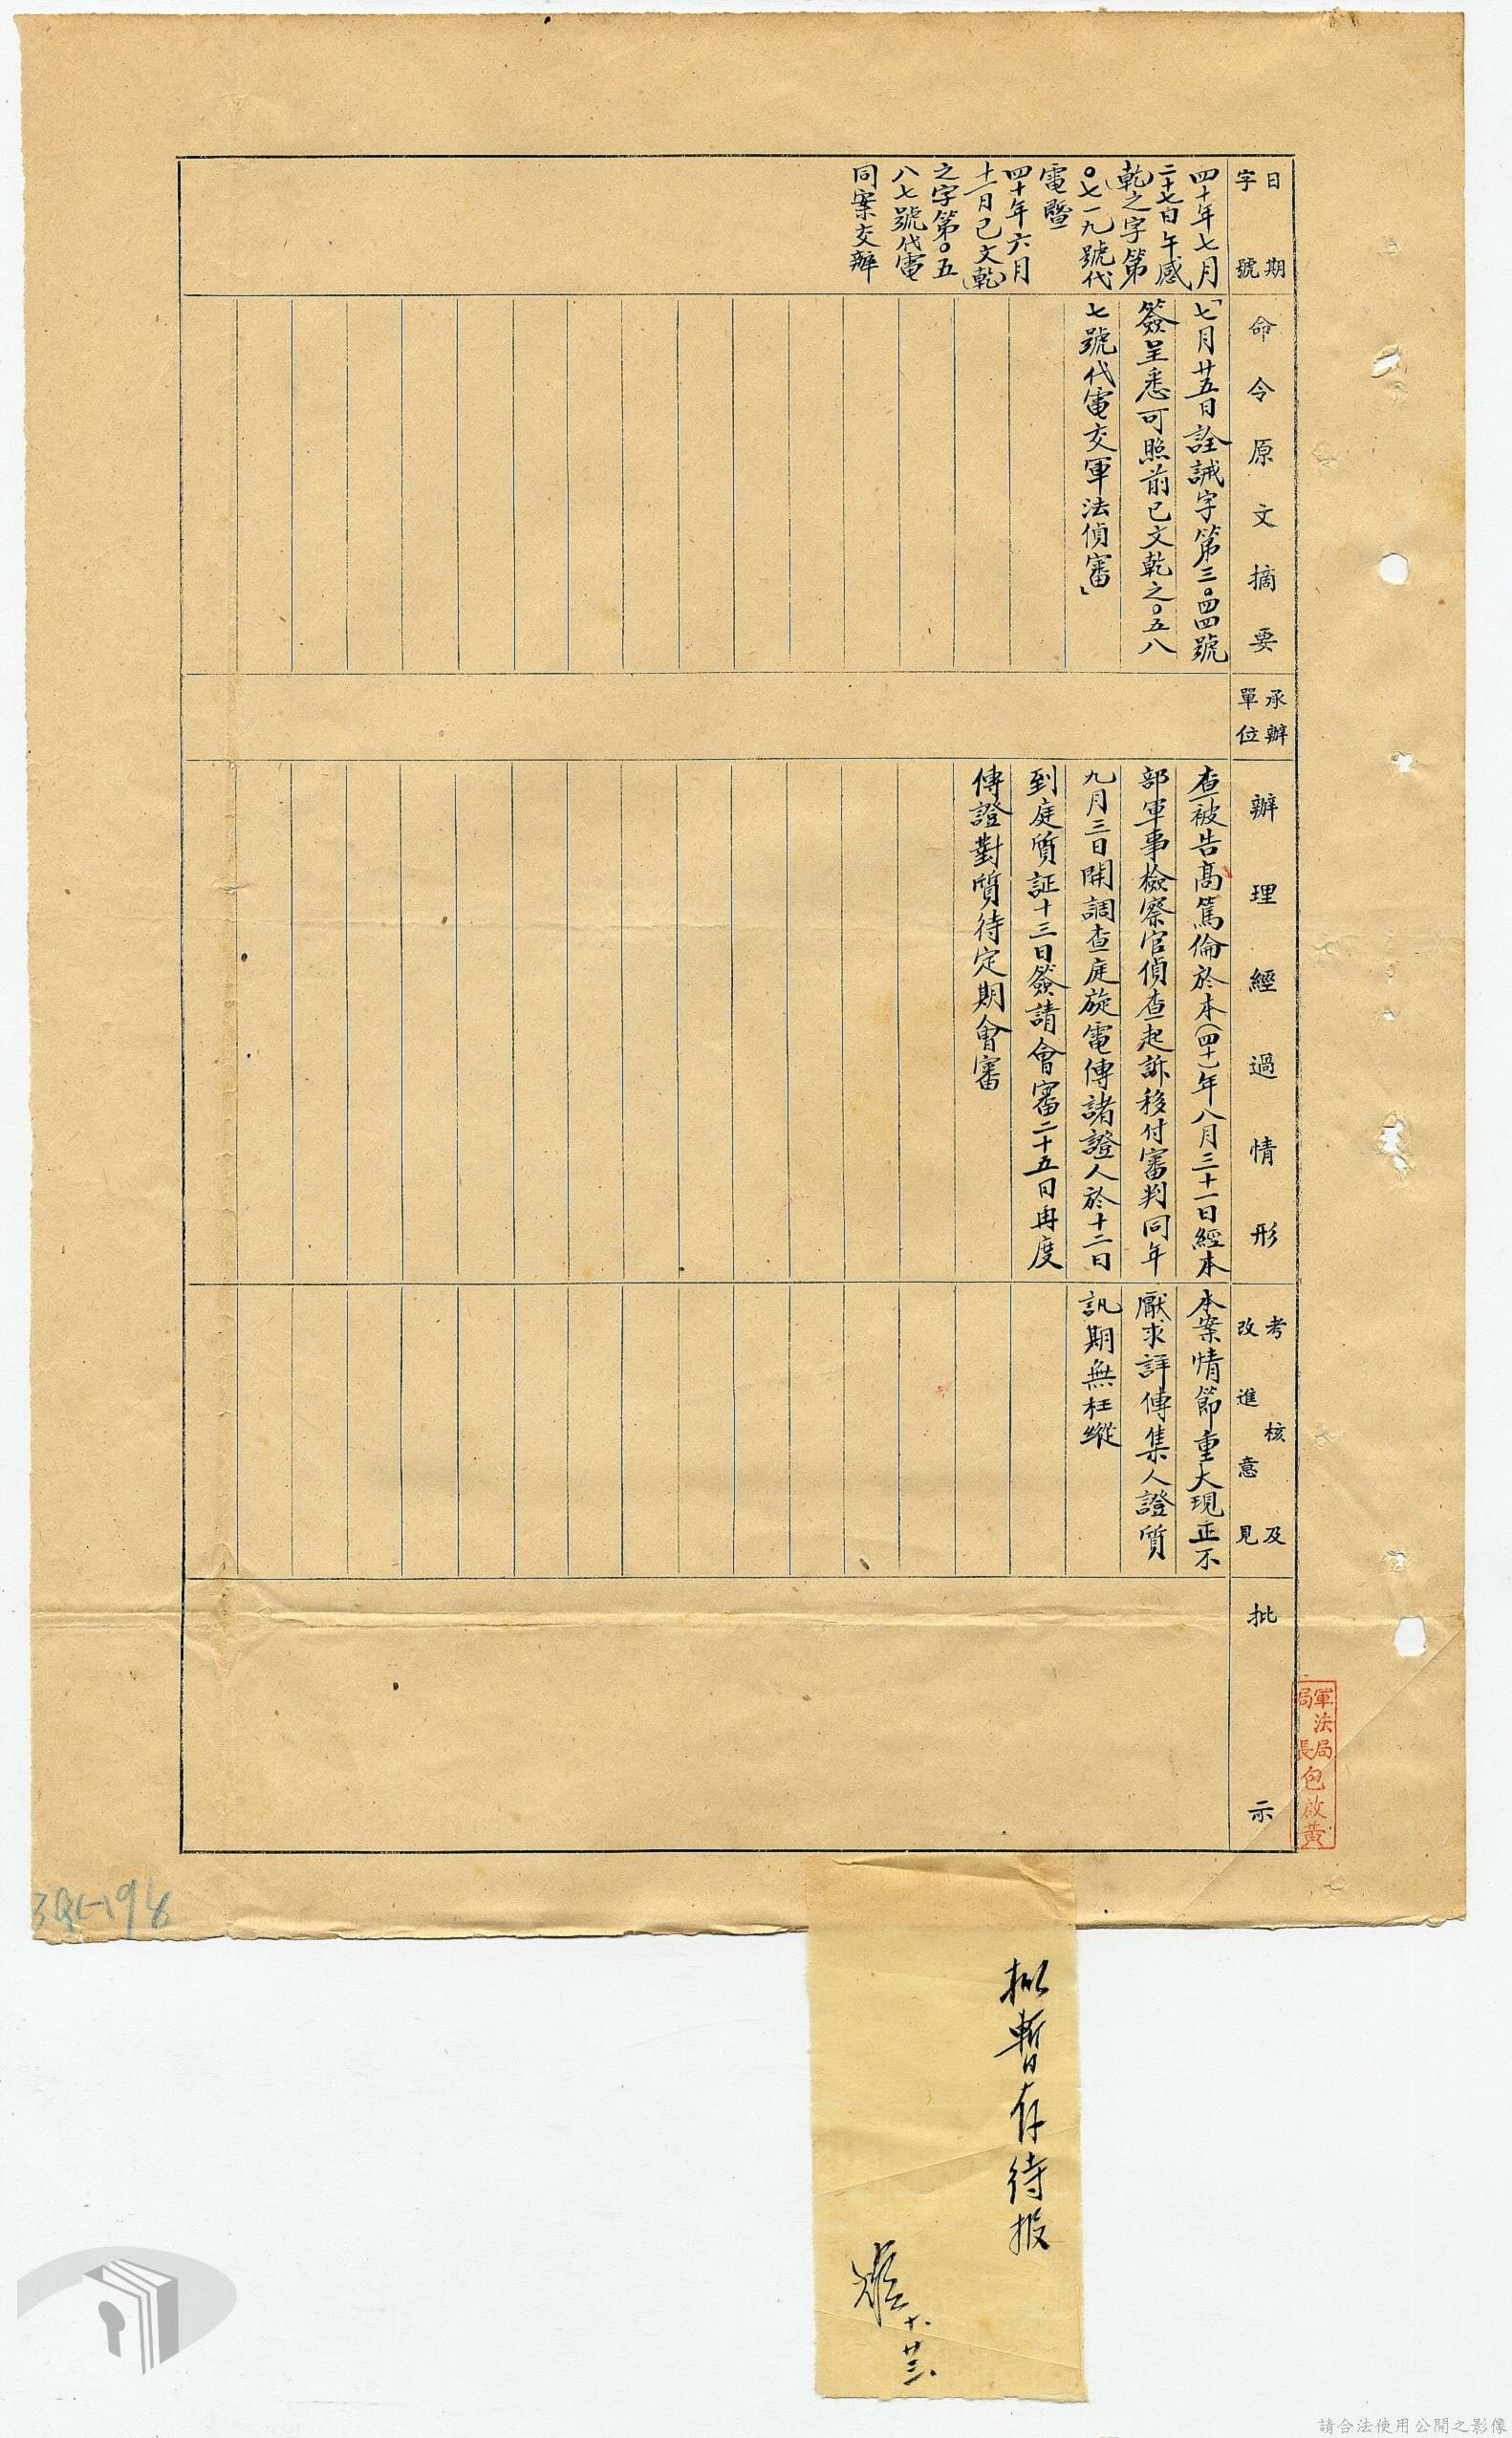 日期
字號
四十年七月
二十七日午感
乾之字第
〇七一九號代
電暨
四十年六月
十一日已文(乾)
之字第〇五
八七號代電
同案交辦
命令原文摘要
「七月廿五日詮誡字第三〇四四號
簽呈悉可照前已文乾之〇五八
七號代電交軍法偵審」
承辦
單位
辦理經過情形
查被告高篤倫於本(四十)年八月三十一日經本
部軍事檢察官偵查起訴移付審判同年
九月三日開調查庭旋電傳諸證人於十二日
到庭質証十三日簽請會審二十五日再度
傳證對質待定期會審
考核及
改進意見
本案情節重大現正不
厭求詳傳集人證質
訊期無枉縱
批示
軍法局
局長
包啟黃
擬暫存待報
十、廿三、
請合法使用公開之影像